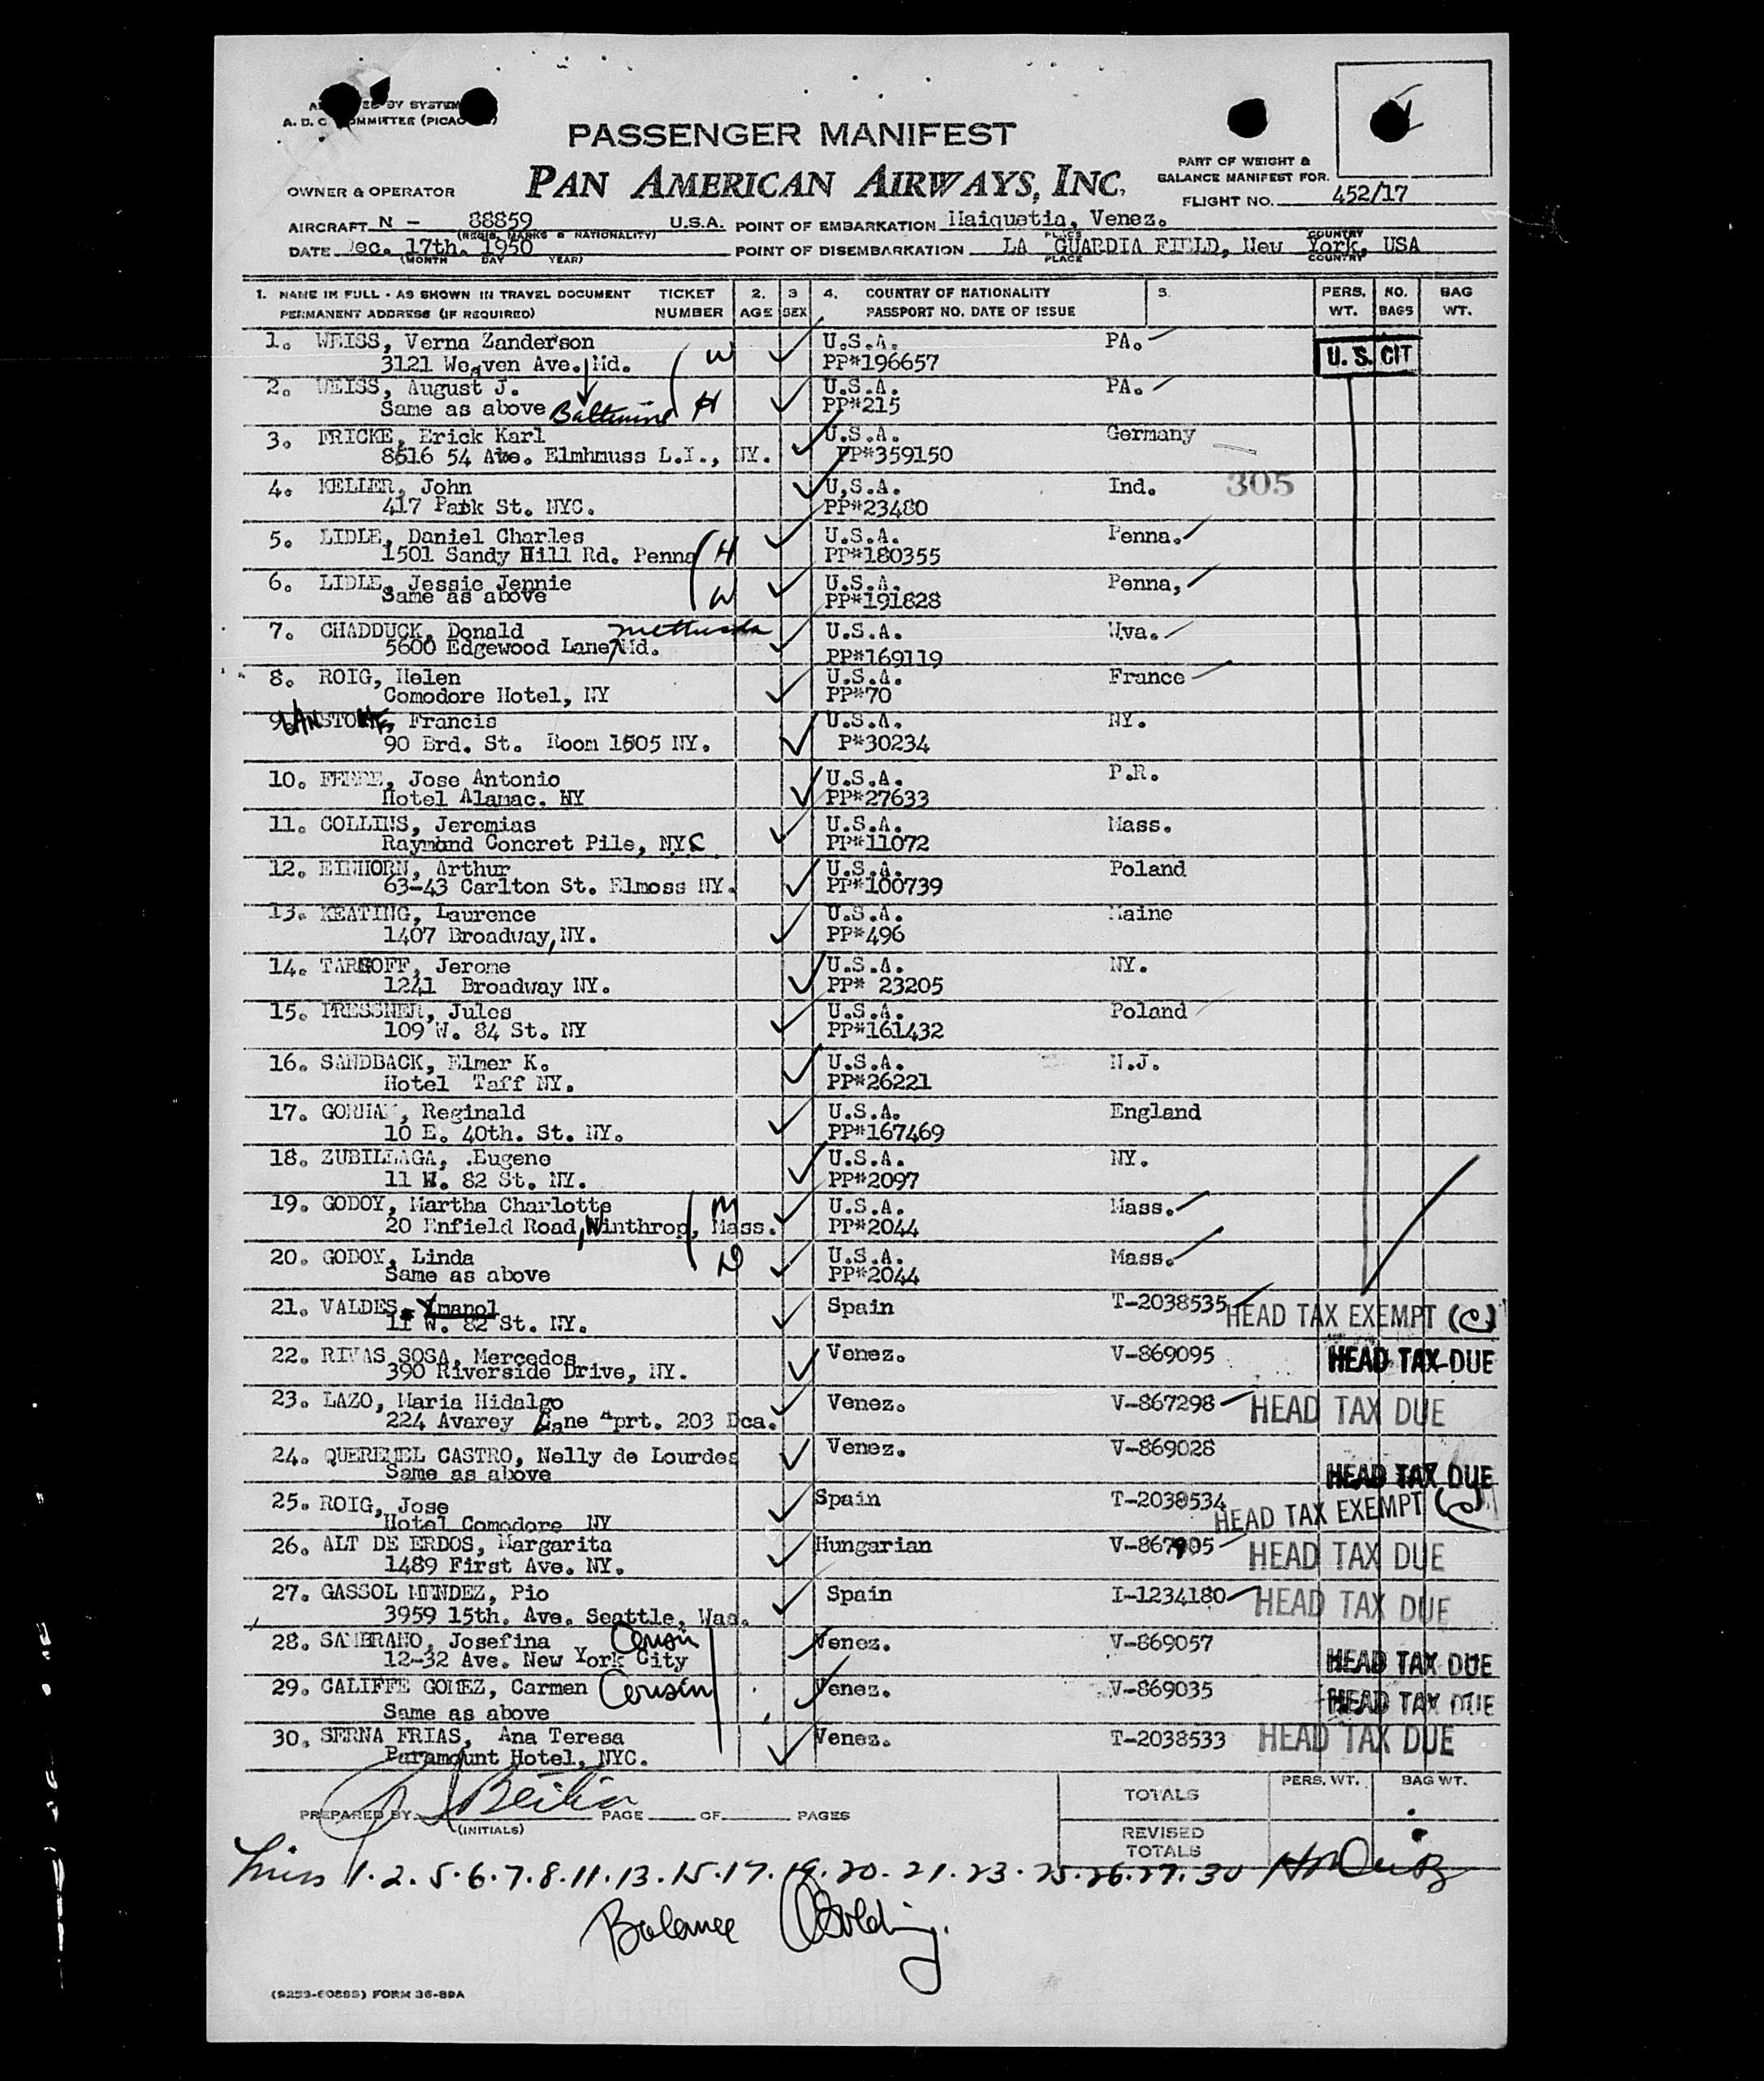 A. D. C. COMMITTEE (PICAO
PASSENGER MANIFEST
PAN AMERICAN AIRWAYS, INC.
PART OF WEIGHT &
BALANCE MANIFEST FOR.
OWNER & OPERATOR
FLIGHT NO. 452/17
AIRCRAFT N - 88859 U.S.A. POINT OF EMBARKATION Maiquetia, Venez.
(REGIS. MARKS & NATIONALITY) PLACE COUNTRY
DATE Dec. 17th. 1950 POINT OF DISEMBARKATION LA GUARDIA FIELD, New York, USA
(MONTH DAY YEAR) PLACE COUNTRY
1. NAME IN FULL - AS SHOWN IN TRAVEL DOCUMENT TICKET 2. 3 4. COUNTRY OF NATIONALITY 5. PERS. NO. BAG
PERMANENT ADDRESS (IF REQUIRED) NUMBER AGE SEX PASSPORT NO. DATE OF ISSUE WT. BAGS WT.
1. WEISS, Verna Zanderson U.S.A. PA.
3121 Weaven Ave. Md. W PP#196657 U. S. CIT
2. WEISS, August J. U.S.A. PA.
Same as above Baltimore H PP#215
3. FRICKE, Erick Karl U.S.A. Germany
8616 54 Ave. Elmhmuss L.I., NY. PP#359150
4. KELLER, John U.S.A. Ind. 305
417 Park St. NYC. PP#23480
5. LIDLE, Daniel Charles U.S.A. Penna.
1501 Sandy Hill Rd. Penna H PP#180355
6. LIDLE, Jessie Jennie U.S.A. Penna,
Same as above W PP#191828
7. CHADDUCK, Donald U.S.A. Wva.
5600 Edgewood Lane, Md. PP#169119
8. ROIG, Helen U.S.A. France
Comodore Hotel, NY PP#70
9. Francis U.S.A. NY.
90 Brd. St. Room 1605 NY. P#30234
10. Jose Antonio U.S.A. P.R.
Hotel Alamac. NY PP#27633
11. COLLINS, Jeremias U.S.A. Mass.
Raymond Concret Pile, NYC PP#11072
12. EINHORN, Arthur U.S.A. Poland
63-43 Carlton St. Elmoss NY. PP#100739
13. KEATING, Laurence U.S.A. Maine
1407 Broadway, NY. PP#496
14. TARGOFF, Jerome U.S.A. NY.
1241 Broadway NY. PP# 23205
15. PRESSNER, Jules U.S.A. Poland
109 W. 84 St. NY PP#161432
16. SANDBACK, Elmer K. U.S.A. N.J.
Hotel Taff NY. PP#26221
17. GORHAM, Reginald U.S.A. England
10 E. 40th. St. NY. PP#167469
18. ZUBILLAGA, .Eugene U.S.A. NY.
11 W. 82 St. NY. PP#2097
19. GODOY, Martha Charlotte M U.S.A. Mass.
20 Enfield Road, Winthrop, Mass. PP#2044
20. GODOY, Linda D U.S.A. Mass.
Same as above PP#2044
21. VALDES, Ymanol Spain T-2038535 HEAD TAX EXEMPT (C)
11 W. 82 St. NY.
22. RIVAS SOSA, Mercedes Venez. V-869095 HEAD TAX DUE
390 Riverside Drive, NY.
23. LAZO, Maria Hidalgo Venez. V-867298 HEAD TAX DUE
224 Avarey Lane Aprt. 203 Dca.
24. QUEREMEL CASTRO, Nelly de Lourdes Venez. V-869028
Same as above HEAD TAX DUE
25. ROIG, Jose Spain T-2038534 HEAD TAX EXEMPT (C)
Hotel Comodore NY
26. ALT DE ERDOS, Margarita Hungarian V-867905 HEAD TAX DUE
1489 First Ave. NY.
27. GASSOL MENDEZ, Pio Spain I-1234180 HEAD TAX DUE
3959 15th. Ave. Seattle, Was.
28. SAMBRANO, Josefina Cousin Venez. V-869057
12-32 Ave. New York City HEAD TAX DUE
29. CALIFFE GOMEZ, Carmen Cousin Venez. V-869035 HEAD TAX DUE
Same as above
30. SERNA FRIAS, Ana Teresa Venez. T-2038533 HEAD TAX DUE
Paramount Hotel, NYC.
PERS. WT. BAG WT.
TOTALS
PREPARED BY PAGE OF PAGES
(INITIALS)
REVISED
TOTALS
1. 2. 5. 6. 7. 8. 11. 13. 15. 17. 19. 20. 21. 23. 25. 26. 27. 30
Balance
FORM 36-89A